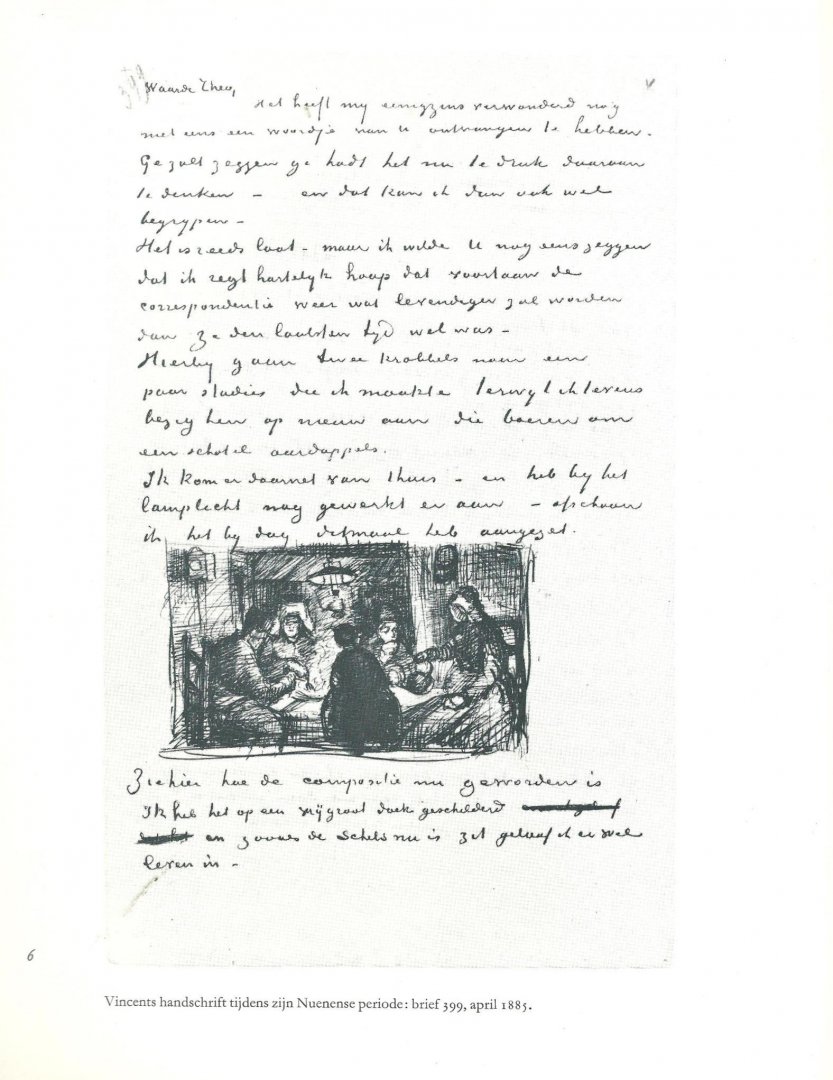 399
Waarde Theo,
Het heeft my eenigzins verwonderd nog
niet eens een woordje van U ontvangen te hebben.
Ge zult zeggen ge hadt het nu te druk daaraan
te denken – en dat kan ik dan ook wel
begrypen –
Het is reeds laat – maar ik wilde U nog eens zeggen
dat ik regt hartelyk hoop dat voortaan de
correspondentie weer wat levendiger zal worden
dan ze den laatsten tyd wel was –
Hierby gaan twee krabbels naar een
paar studies die ik maakte terwyl ik tevens
bezig ben op nieuw aan die boeren om
een schotel aardappels.
Ik kom er daarnet van thuis – en heb by het
lamplicht nog gewerkt er aan – ofschoon
ik het by dag ditmaal heb aangezet.
Ziehier hoe de compositie nu geworden is
Ik heb het op een vrij groot doek geschilderd
en zooals de schets nu is zit geloof ik er wel
leven in –
6
Vincents handschrift tijdens zijn Nuenense periode: brief 399, april 1885.